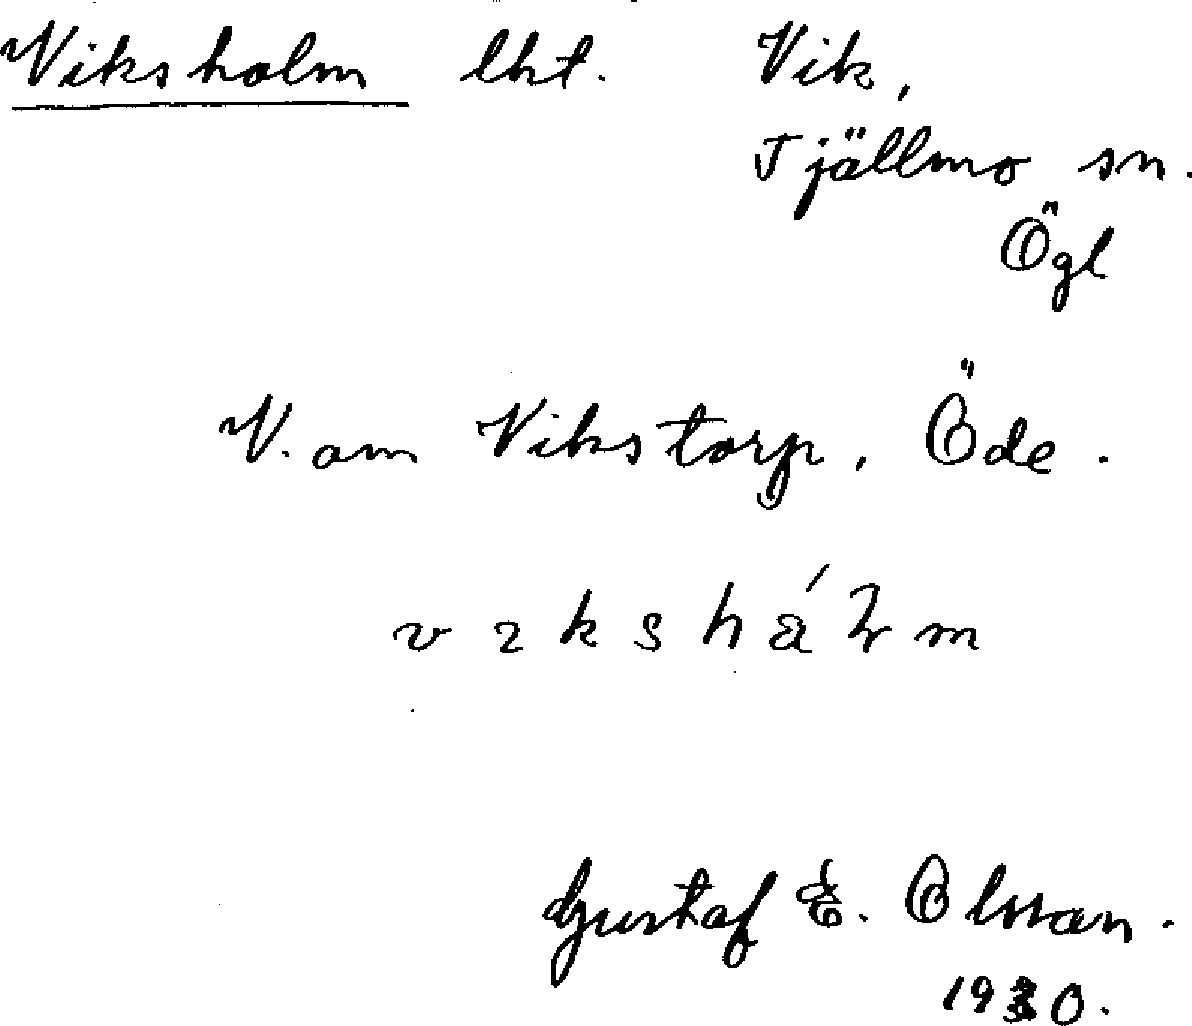 Viksholm lht. Vik,
Tjällmo sn.
Ögl
V. om Vikstorp. Öde.
Gustaf E. Olsson.
1930.